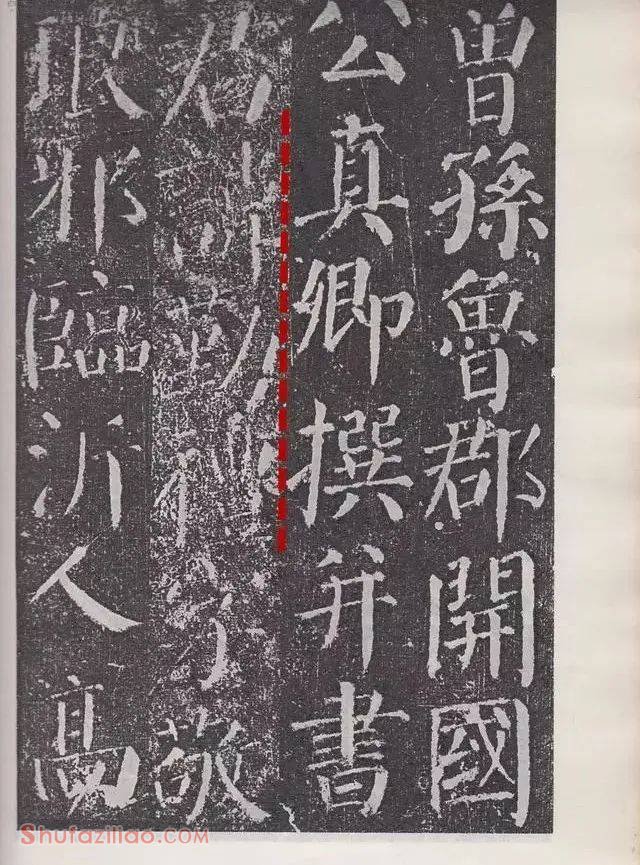 曾孫魯郡開國
公真卿撰并書
君諱勤禮字敬
琅邪臨沂人高
Shufaziliao.COM